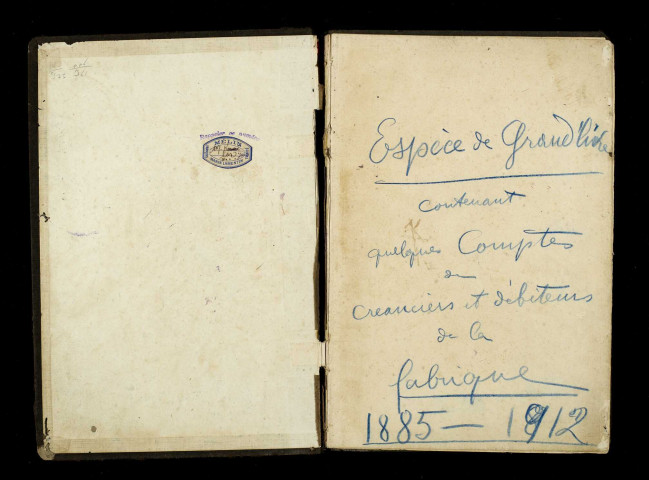 MELIS
Espèce de Grand'livre
contenant
quelques Comptes
de
creanciers et débiteurs
de la
fabrique
1885 — 1912